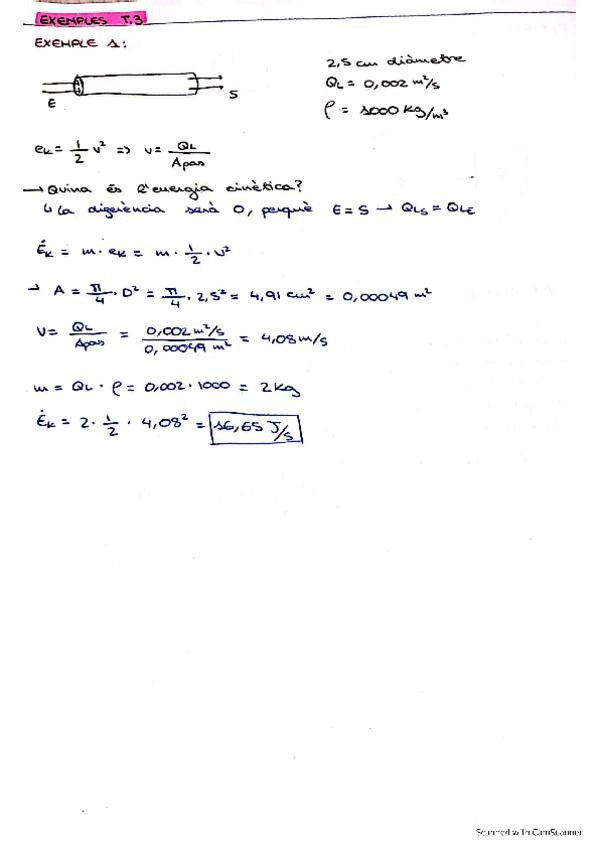 EXEMPLES T.3
EXEMPLE 1:
2,5 cm diàmetre
QL = 0,002 m³/s
ρ = 1000 kg/m³
E
S
eK = 1/2 v² => v = QL/Apas
→ Quina és l'energia cinètica?
↳ la diferència serà 0, perquè E = S → QLS = QLE
ĖK = m · eK = m · 1/2 · v²
→ A = π/4 · D² = π/4 · 2,5² = 4,91 cm² = 0,00049 m²
V = QL/Apas = 0,002 m³/s / 0,00049 m² = 4,08 m/s
m = QL · ρ = 0,002 · 1000 = 2 kg
ĖK = 2 · 1/2 · 4,08² = 16,65 J/s
Scanned with CamScanner